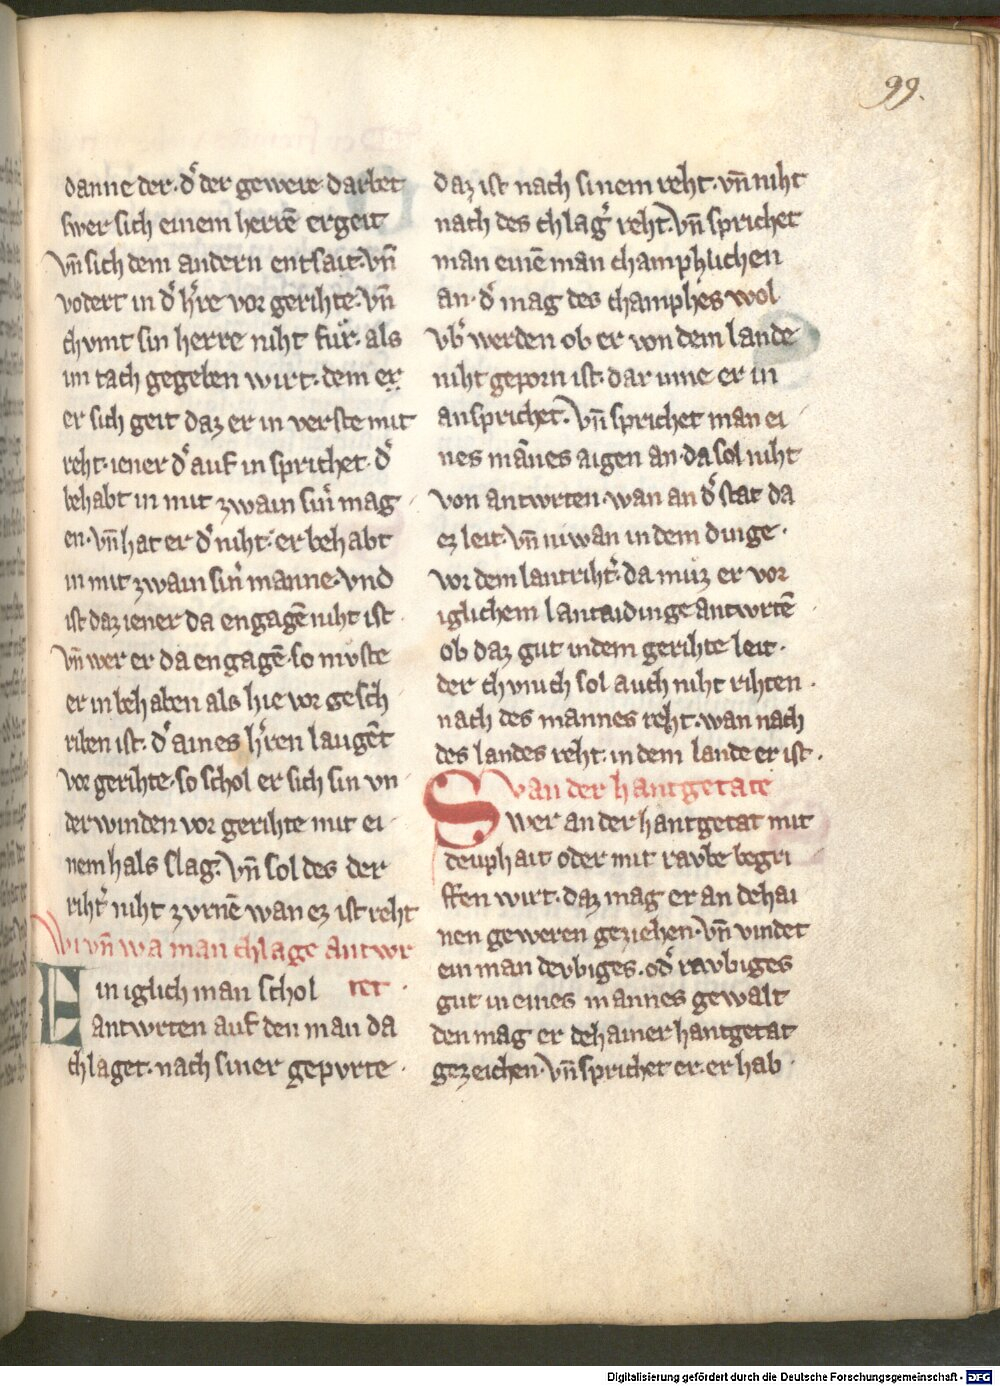 99.
danne der. d͛ der gewere darbet
swer sich einem herrē ergeit
vn̄ sich dem andern entsait. vn̄
vodert in d͛ h͛re vor gerihte. vn̄
chvmt sin herre niht fur. als
im tach gegeben wirt. dem er
er sich geit daz er in verste mit
reht. iener d͛ auf in sprichet. d͛
behabt in mit zwain sin͛ mag
en. vn̄ hat er d͛ niht. er behabt
in mit zwain sin͛ manne. vnd
ist daz iener da engagē niht ist
vn̄ wer er da engagē. so mvste
er in behaben als hie vor gesch
riben ist. d͛ aines h͛ren laugēt
vor gerihte. so schol er sich sin vn
derwinden vor gerihte mit ei
nem hals slag. vn̄ sol des der
riht͛ niht zvrnē wan ez ist reht
Wi vn̄ wa man chlage antwr
tet.
Ein iglich man schol
antwrten auf den man da
chlaget. nach siner gepvrte
daz ist nach sinem reht. vn̄ niht
nach des chlag͛ reht. vn̄ sprichet
man einē man champhlichen
an. d͛ mag des champhes wol
vb͛ werden ob er von dem lande
niht geporn ist. dar inne er in
ansprichet. vn̄ sprichet man ei
nes mānes aigen an. da sol niht
von antwrten. wan an d͛ stat da
ez leit. vn̄ niwan in dem dinge.
vor dem lantriht͛. da muz er vor
iglichem lantaidinge antwrtē
ob daz gut in dem gerihte leit.
der chvnich sol auch niht rihten.
nach des mannes reht. wan nach
des landes reht. in dem lande er ist.
van der hantgetate
Swer an der hantgetat mit
deuphait oder mit ravbe begri
ffen wirt. daz mag er an dehai
nen geweren geziehen. vn̄ vindet
ein man devbiges. od͛ ravbiges
gut in eines mannes gewalt
den mag er dehainer hantgetat
gezeichen. vn̄ sprichet er. er hab
Digitalisierung gefördert durch die Deutsche Forschungsgemeinschaft - DFG